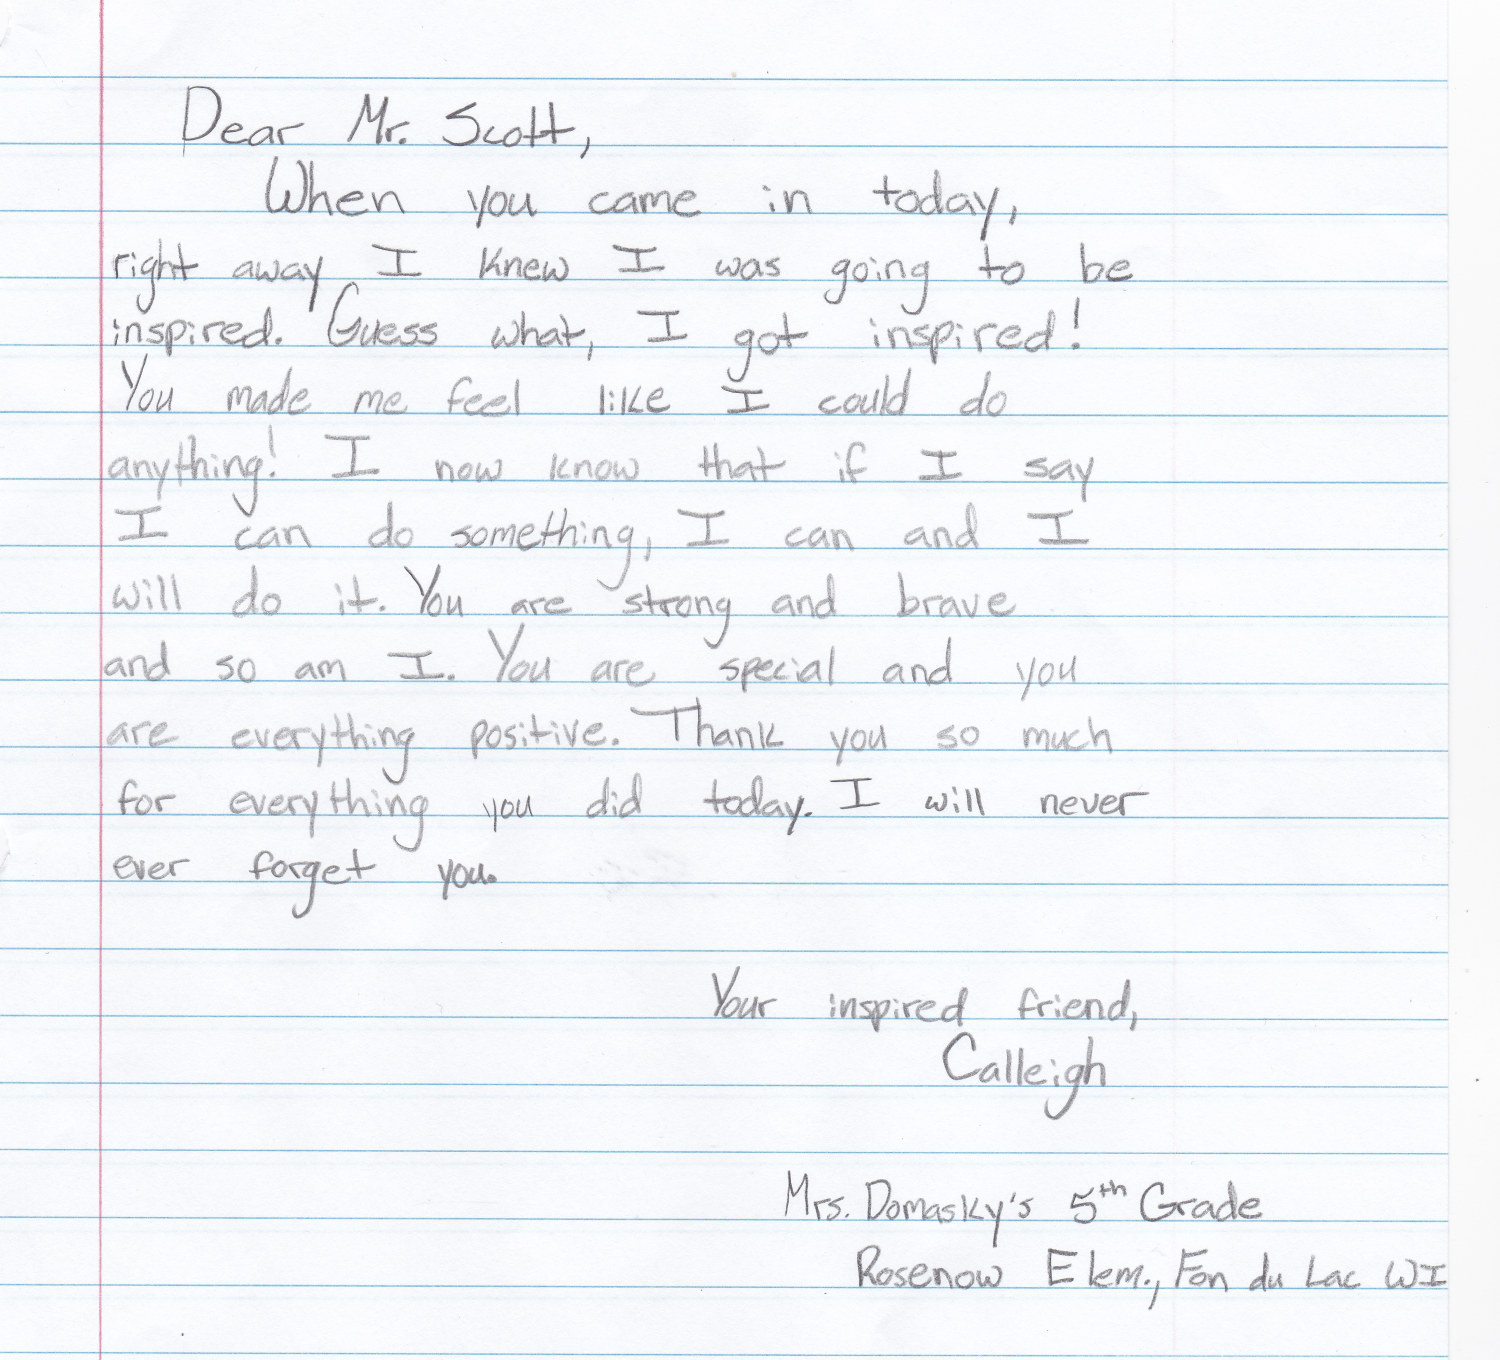 Dear Mr. Scott,
When you came in today,
right away I knew I was going to be
inspired. Guess what, I got inspired!
You made me feel like I could do
anything! I now know that if I say
I can do something, I can and I
will do it. You are strong and brave
and so am I. You are special and you
are everything positive. Thank you so much
for everything you did today. I will never
ever forget you.
Your inspired friend,
Calleigh
Mrs. Domasky's 5th Grade
Rosenow Elem., Fon du Lac WI